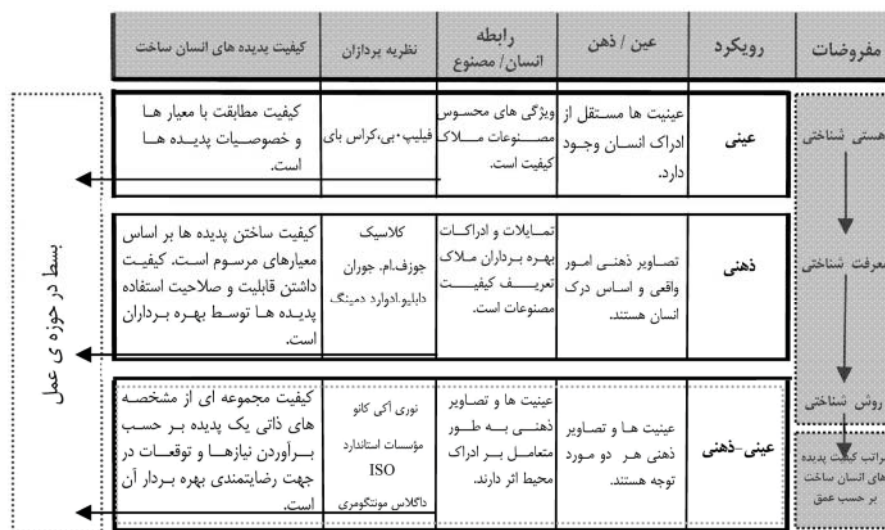 مفروضات
رویکرد
عین / ذهن
رابطه
انسان/ مصنوع
نظریه پردازان
کیفیت پدیده های انسان ساخت
هستی شناختی
معرفت شناختی
روش شناختی
مراتب کیفیت پدیده
های انسان ساخت
بر حسب عمق
عینی
عینیت ها مستقل از
ادراک انسان وجود
دارد.
ویژگی های محسوس
مصنوعات ملاک
کیفیت است.
فیلیپ.بی،کراس بای
کیفیت مطابقت با معیار ها
و خصوصیات پدیده ها
است.
ذهنی
تصاویر ذهنی امور
واقعی و اساس درک
انسان هستند.
تمایلات و ادراکات
بهره برداران ملاک
تعریف کیفیت
مصنوعات است.
کلاسیک
جوزف.ام. جوران
دابلیو.ادوارد دمینگ
کیفیت ساختن پدیده ها بر اساس
معیارهای مرسوم است. کیفیت
داشتن قابلیت و صلاحیت استفاده
پدیده ها توسط بهره برداران
است
عینی-ذهنی
عینیت ها و تصاویر
ذهنی هر دو مورد
توجه هستند.
عینیت ها و تصاویر
ذهنی به طور
متعامل بر ادراک
محیط اثر دارند.
نوری آکی کانو
مؤسسات استاندارد
ISO
داگلاس مونتگومری
کیفیت مجموعه ای از مشخصه
های ذاتی یک پدیده بر حسب
برآوردن نیازها و توقعات در
جهت رضایتمندی بهره بردار آن
است.
بسط در حوزه ی عمل